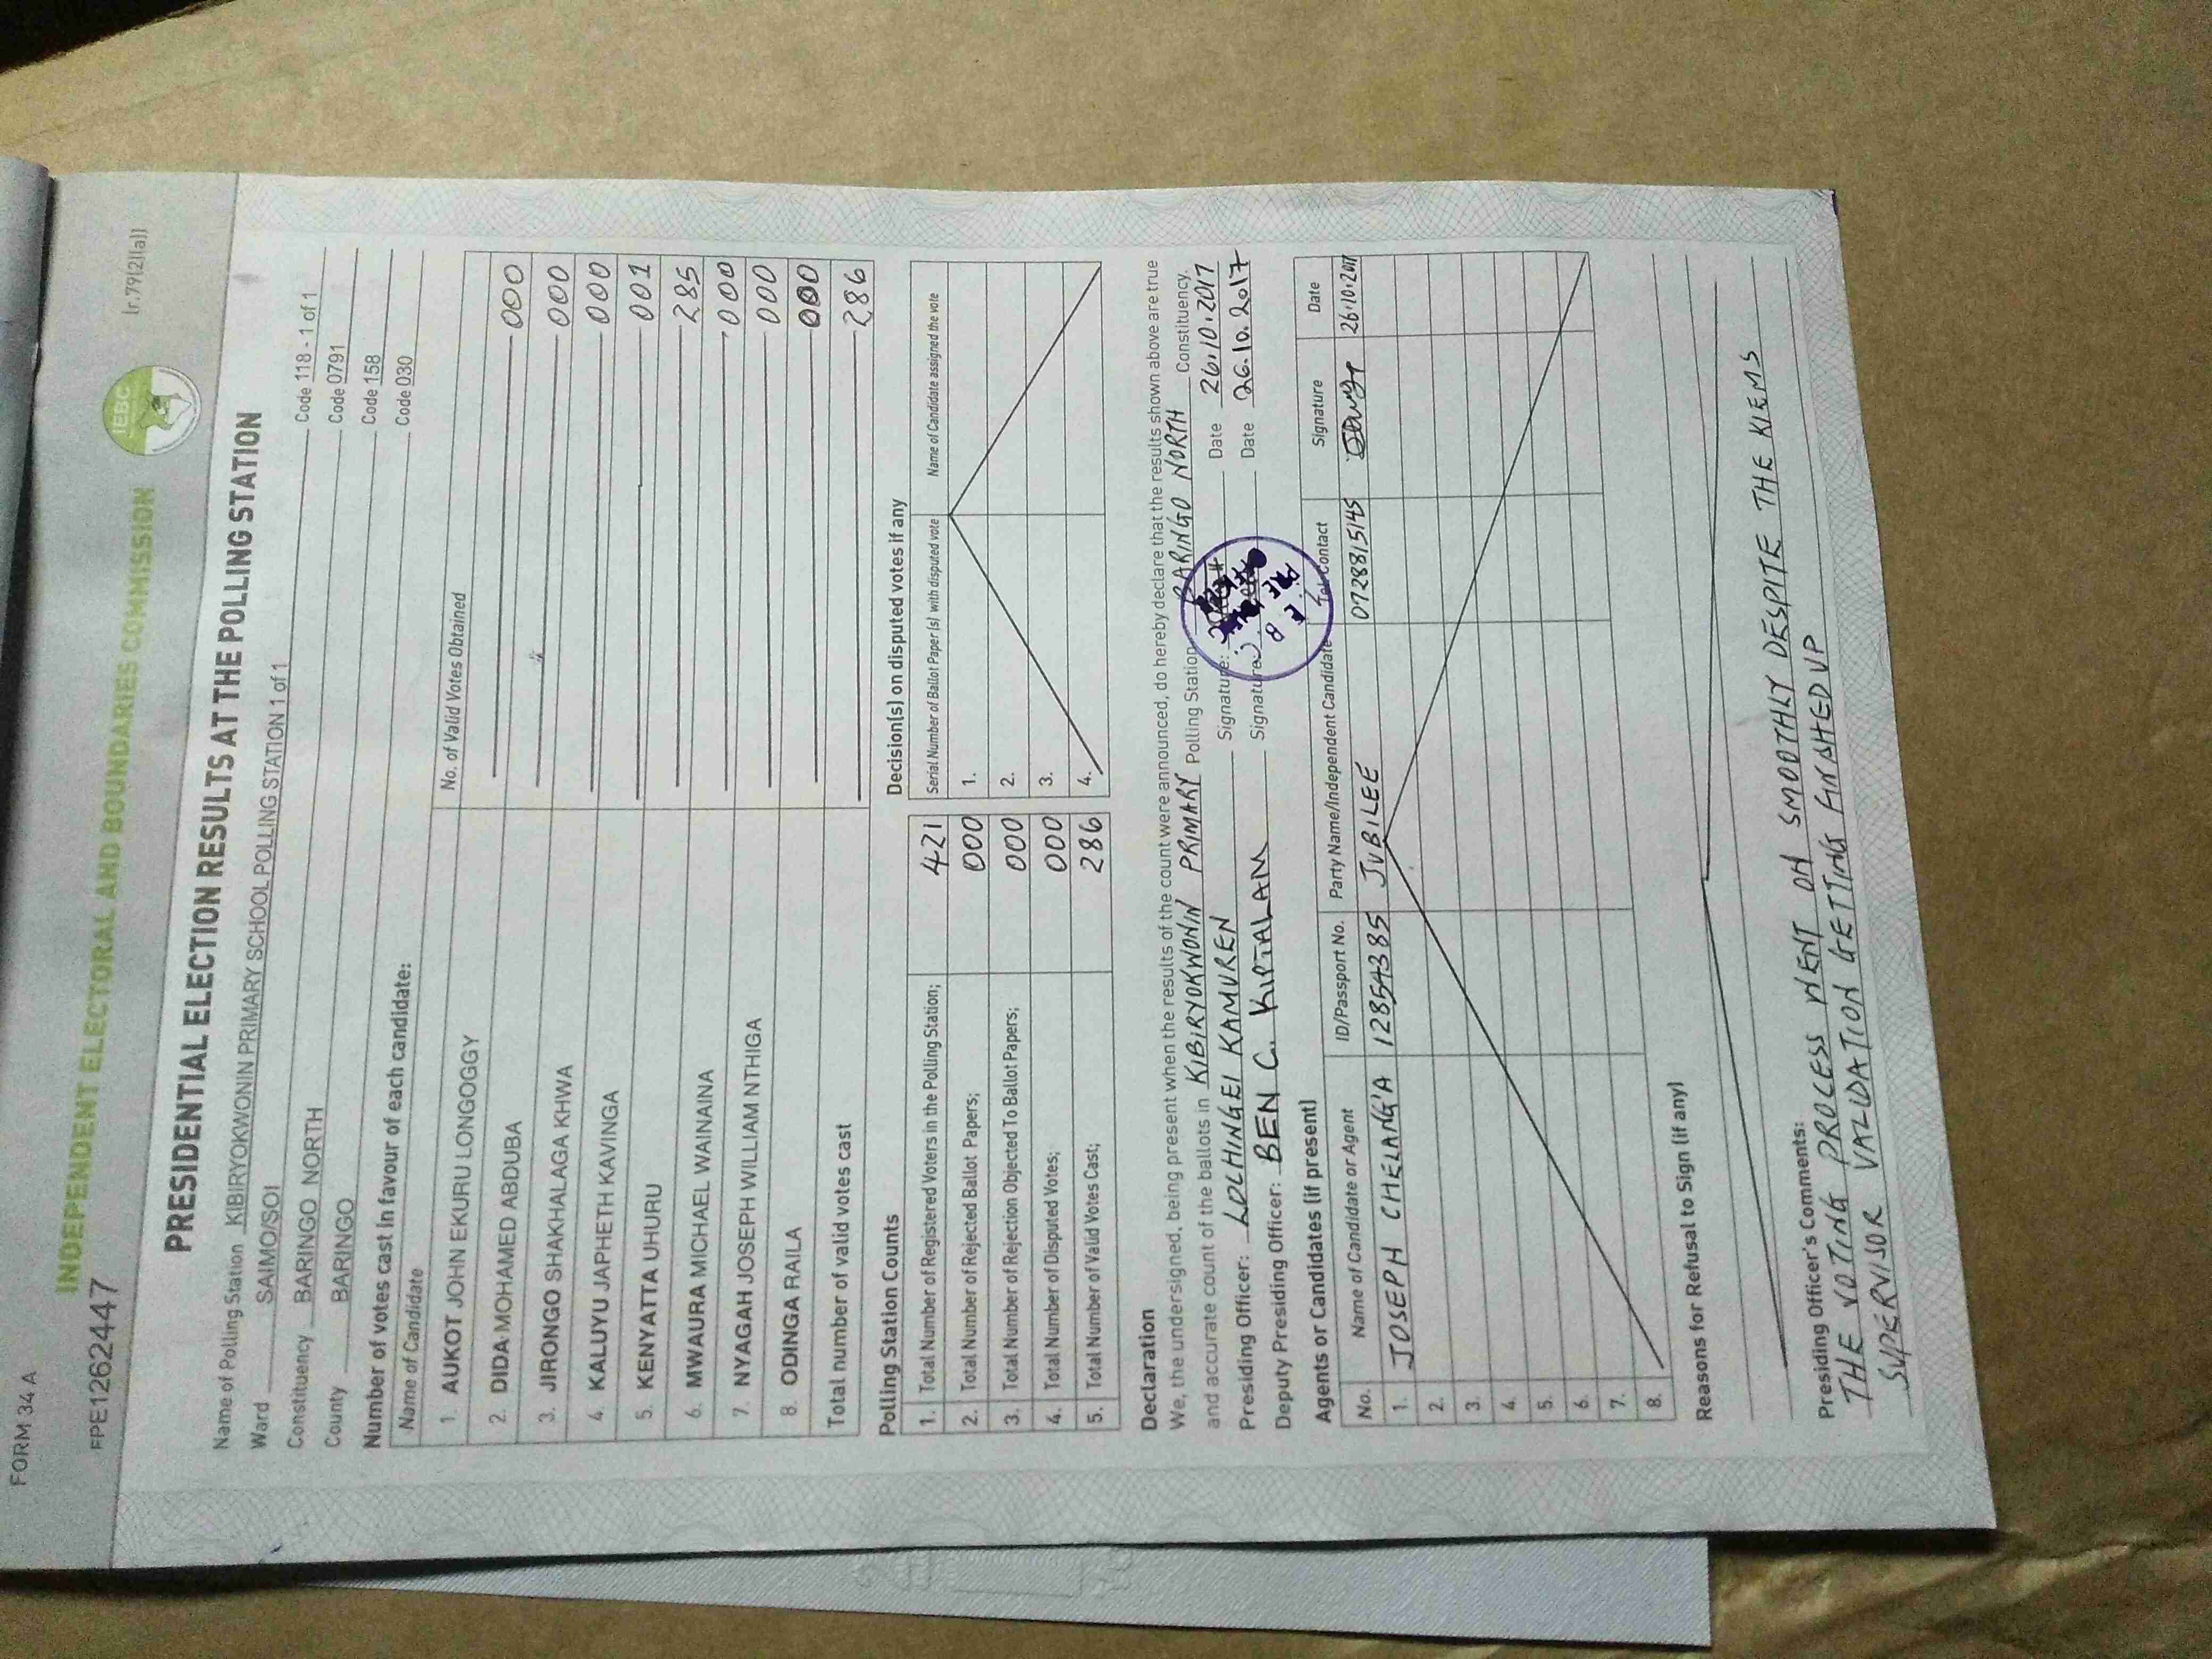 FORM 34 A
INDEPENDENT ELECTORAL AND BOUNDARIES COMMISSION
IEBC
(r.79(2)(a))
PPE1262447
PRESIDENTIAL ELECTION RESULTS AT THE POLLING STATION
Name of Polling Station KIBIRYOKWONIN PRIMARY SCHOOL POLLING STATION 1 of 1 Code 118 - 1 of 1
Ward SAIMO/SOI Code 0791
Constituency BARINGO NORTH Code 158
County BARINGO Code 030
Number of votes cast in favour of each candidate:
Name of Candidate No. of Valid Votes Obtained
1. AUKOT JOHN EKURU LONGOGGY 000
2. DIDA MOHAMED ABDUBA 000
3. JIRONGO SHAKHALAGA KHWA 000
4. KALUYU JAPHETH KAVINGA 001
5. KENYATTA UHURU 285
6. MWAURA MICHAEL WAINAINA 000
7. NYAGAH JOSEPH WILLIAM NTHIGA 000
8. ODINGA RAILA 000
Total number of valid votes cast 286
Polling Station Counts
1. Total Number of Registered Voters in the Polling Station; 421
2. Total Number of Rejected Ballot Papers; 000
3. Total Number of Rejection Objected To Ballot Papers; 000
4. Total Number of Disputed Votes; 000
5. Total Number of Valid Votes Cast; 286
Decision(s) on disputed votes if any
Serial Number of Ballot Paper (s) with disputed vote Name of Candidate assigned the vote
1.
2.
3.
4.
Declaration
We, the undersigned, being present when the results of the count were announced, do hereby declare that the results shown above are true
and accurate count of the ballots in KIBIRYOKWONIN PRIMARY Polling Station BARINGO NORTH Constituency.
Presiding Officer: LOCHINGEI KAMUREN Signature: Date 26.10.2017
Deputy Presiding Officer: BEN C. KIPTALAM Signature: Date 26.10.2017
Agents or Candidates (if present)
No. Name of Candidate or Agent ID/Passport No. Party Name/Independent Candidate Tel. Contact Signature Date
1. JOSEPH CHELANG'A 12854385 JUBILEE 0728815145 26.10.2017
2.
3.
4.
5.
6.
7.
8.
Reasons for Refusal to Sign (if any)
Presiding Officer's Comments:
THE VOTING PROCESS WENT ON SMOOTHLY DESPITE THE KIEMS
SUPERVISOR VALIDATION GETTING FINISHED UP